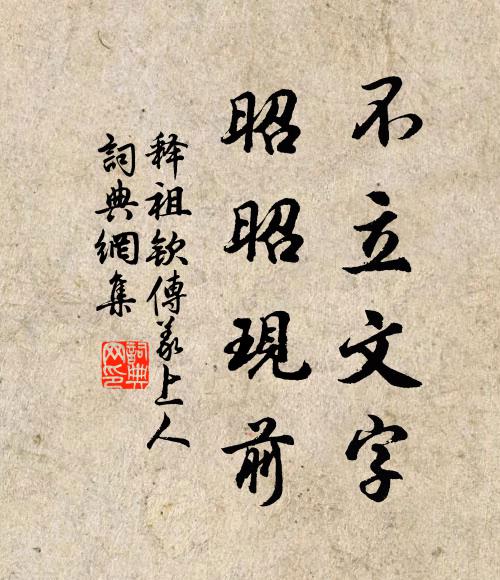 不立文字
昭昭現前
释祖欽傳義上人
詞典網集
詞典
网印